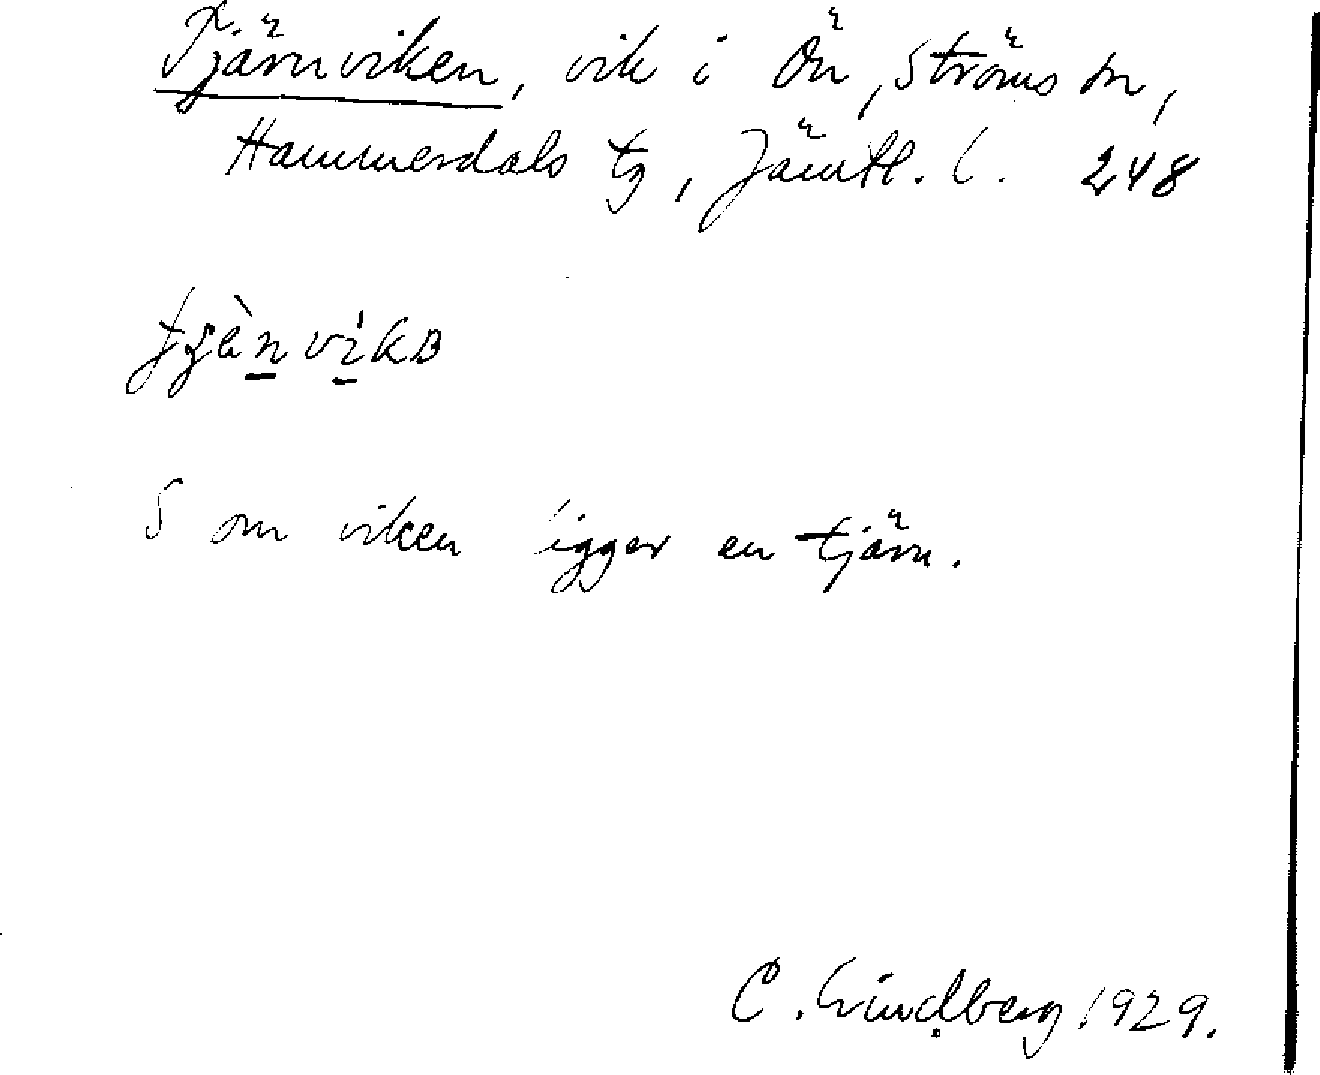 Tjärnviken, vik i Ön, Ströms sn,
Hammerdals tg, Jämtl. l. 248
S om viken ligger en tjärn.
C. Lindberg 1929.